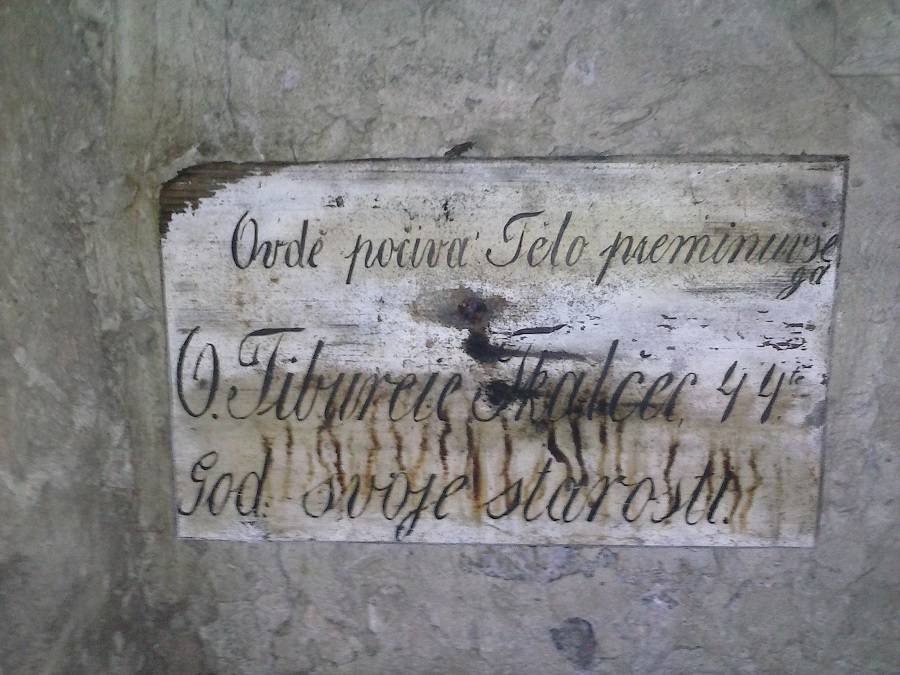 Ovdě počiva Tělo preminuvše
ga
O. Tiburcie Skalčec 44te
God. svoje starosti.